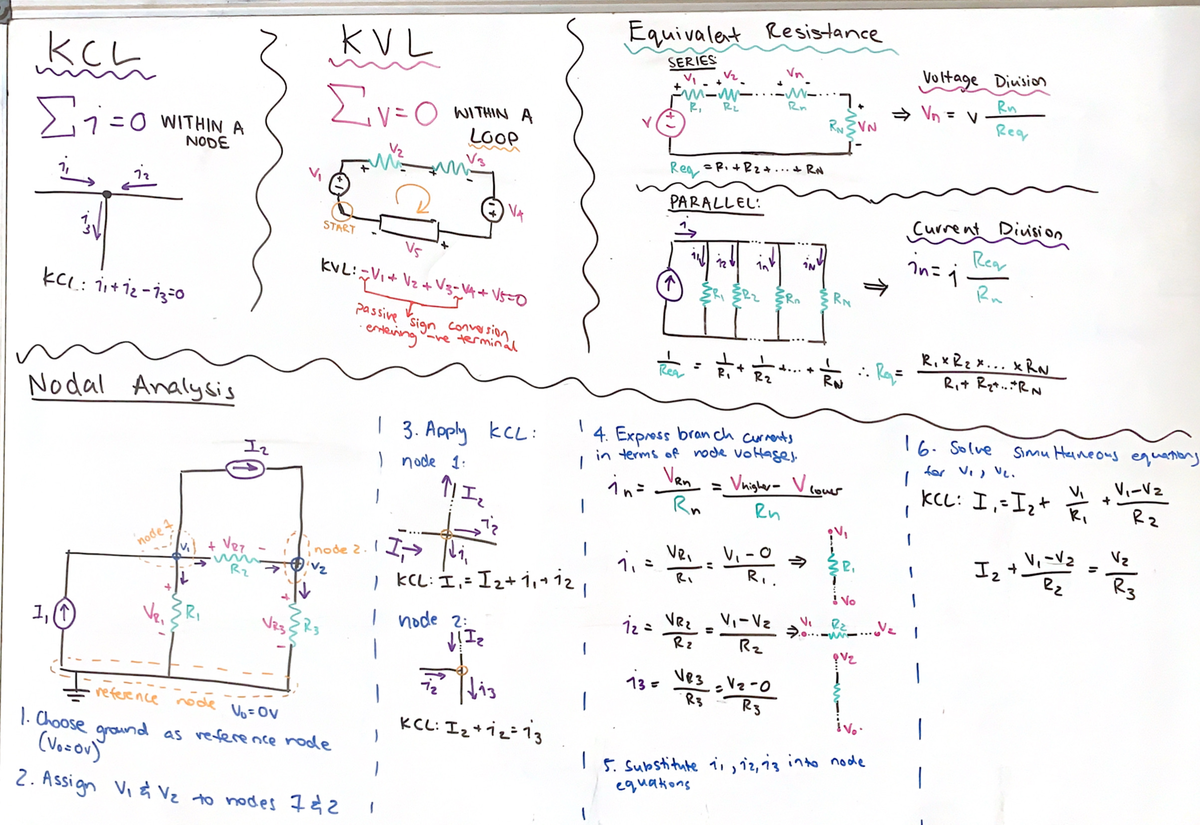 KCL
∑i=0 WITHIN A
NODE
i₁ i₂
i₃
KCL: i₁+i₂-i₃=0
KVL
∑V=0 WITHIN A
LOOP
V₁ + - + V₂ - + V₃ - + - V₄
START
- V₅ +
KVL: -V₁+V₂+V₃-V₄+V₅=0
passive sign conversion
entering -ve terminal
Equivalent Resistance
SERIES
+ V₁ - + V₂ - + Vn -
R₁ R₂ Rn
V + - RN + VN -
Req = R₁+R₂+...+RN
Voltage Division
⇒ Vn = V Rn/Req
PARALLEL:
i
i₁ i₂ in iN
R₁ R₂ Rn RN
Current Division
⇒ in = i Req/Rn
1/Req = 1/R₁ + 1/R₂ +...+ 1/RN ∴ Req = R₁×R₂×...×RN/R₁+R₂+...+RN
Nodal Analysis
I₂
node 1 V₁ + VR2 - node 2
R₂ V₂
I₁ + VR₁ - R₁ + VR3 - R₃
reference node V₀=0V
1. Choose ground as reference node
(V₀=0V)
2. Assign V₁ & V₂ to nodes 1 & 2
3. Apply KCL:
node 1:
I₂
i₂
I₁ i₁
KCL: I₁=I₂+i₁+i₂
node 2:
I₂
i₂ i₃
KCL: I₂+i₂=i₃
4. Express branch currents
in terms of node voltages.
in = VRn/Rn = Vhigher-Vlower/Rn
i₁ = VR₁/R₁ = V₁-0/R₁ ⇒ V₁ R₁ V₀
i₂ = VR2/R₂ = V₁-V₂/R₂ ⇒ V₁ R₂ V₂
i₃ = VR3/R₃ = V₂-0/R₃ V₂ V₀
5. Substitute i₁, i₂, i₃ into node
equations
6. Solve simultaneous equations
for V₁, V₂.
KCL: I₁=I₂+ V₁/R₁ + V₁-V₂/R₂
I₂ + V₁-V₂/R₂ = V₂/R₃